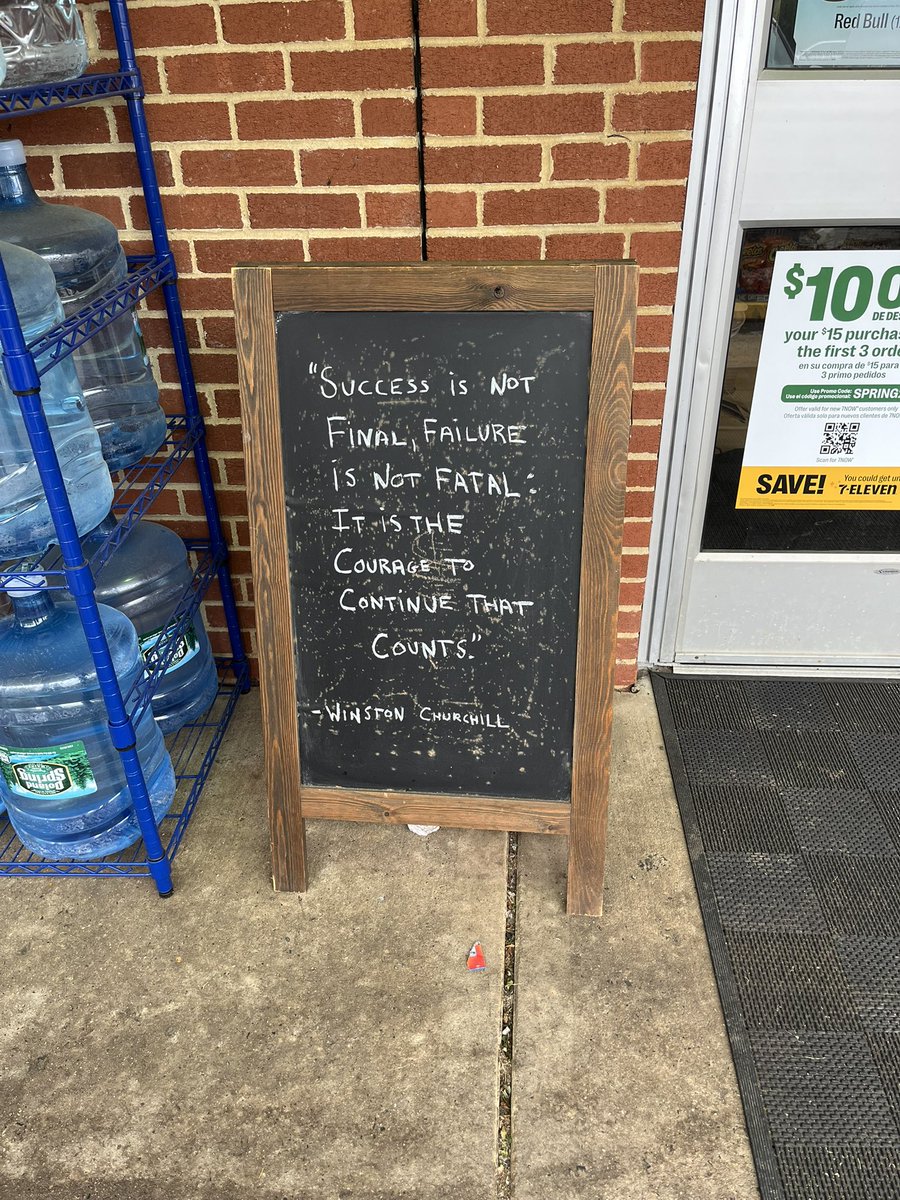 "SUCCESS IS NOT
FINAL, FAILURE
IS NOT FATAL:
IT IS THE
COURAGE TO
CONTINUE THAT
COUNTS."
-WINSTON CHURCHILL
Red Bull
$100
DE DES
your $15 purchas
the first 3 orde
en su compra de $15 para
3 primo pedidos
Use Promo Code:
Use el código promocional: SPRING
Offer valid for new 7NOW® customers only
Oferta válida solo para nuevos clientes de 7NO
Scan for 7NOW
SAVE! You could get un
7-ELEVEN
Poland
Spring